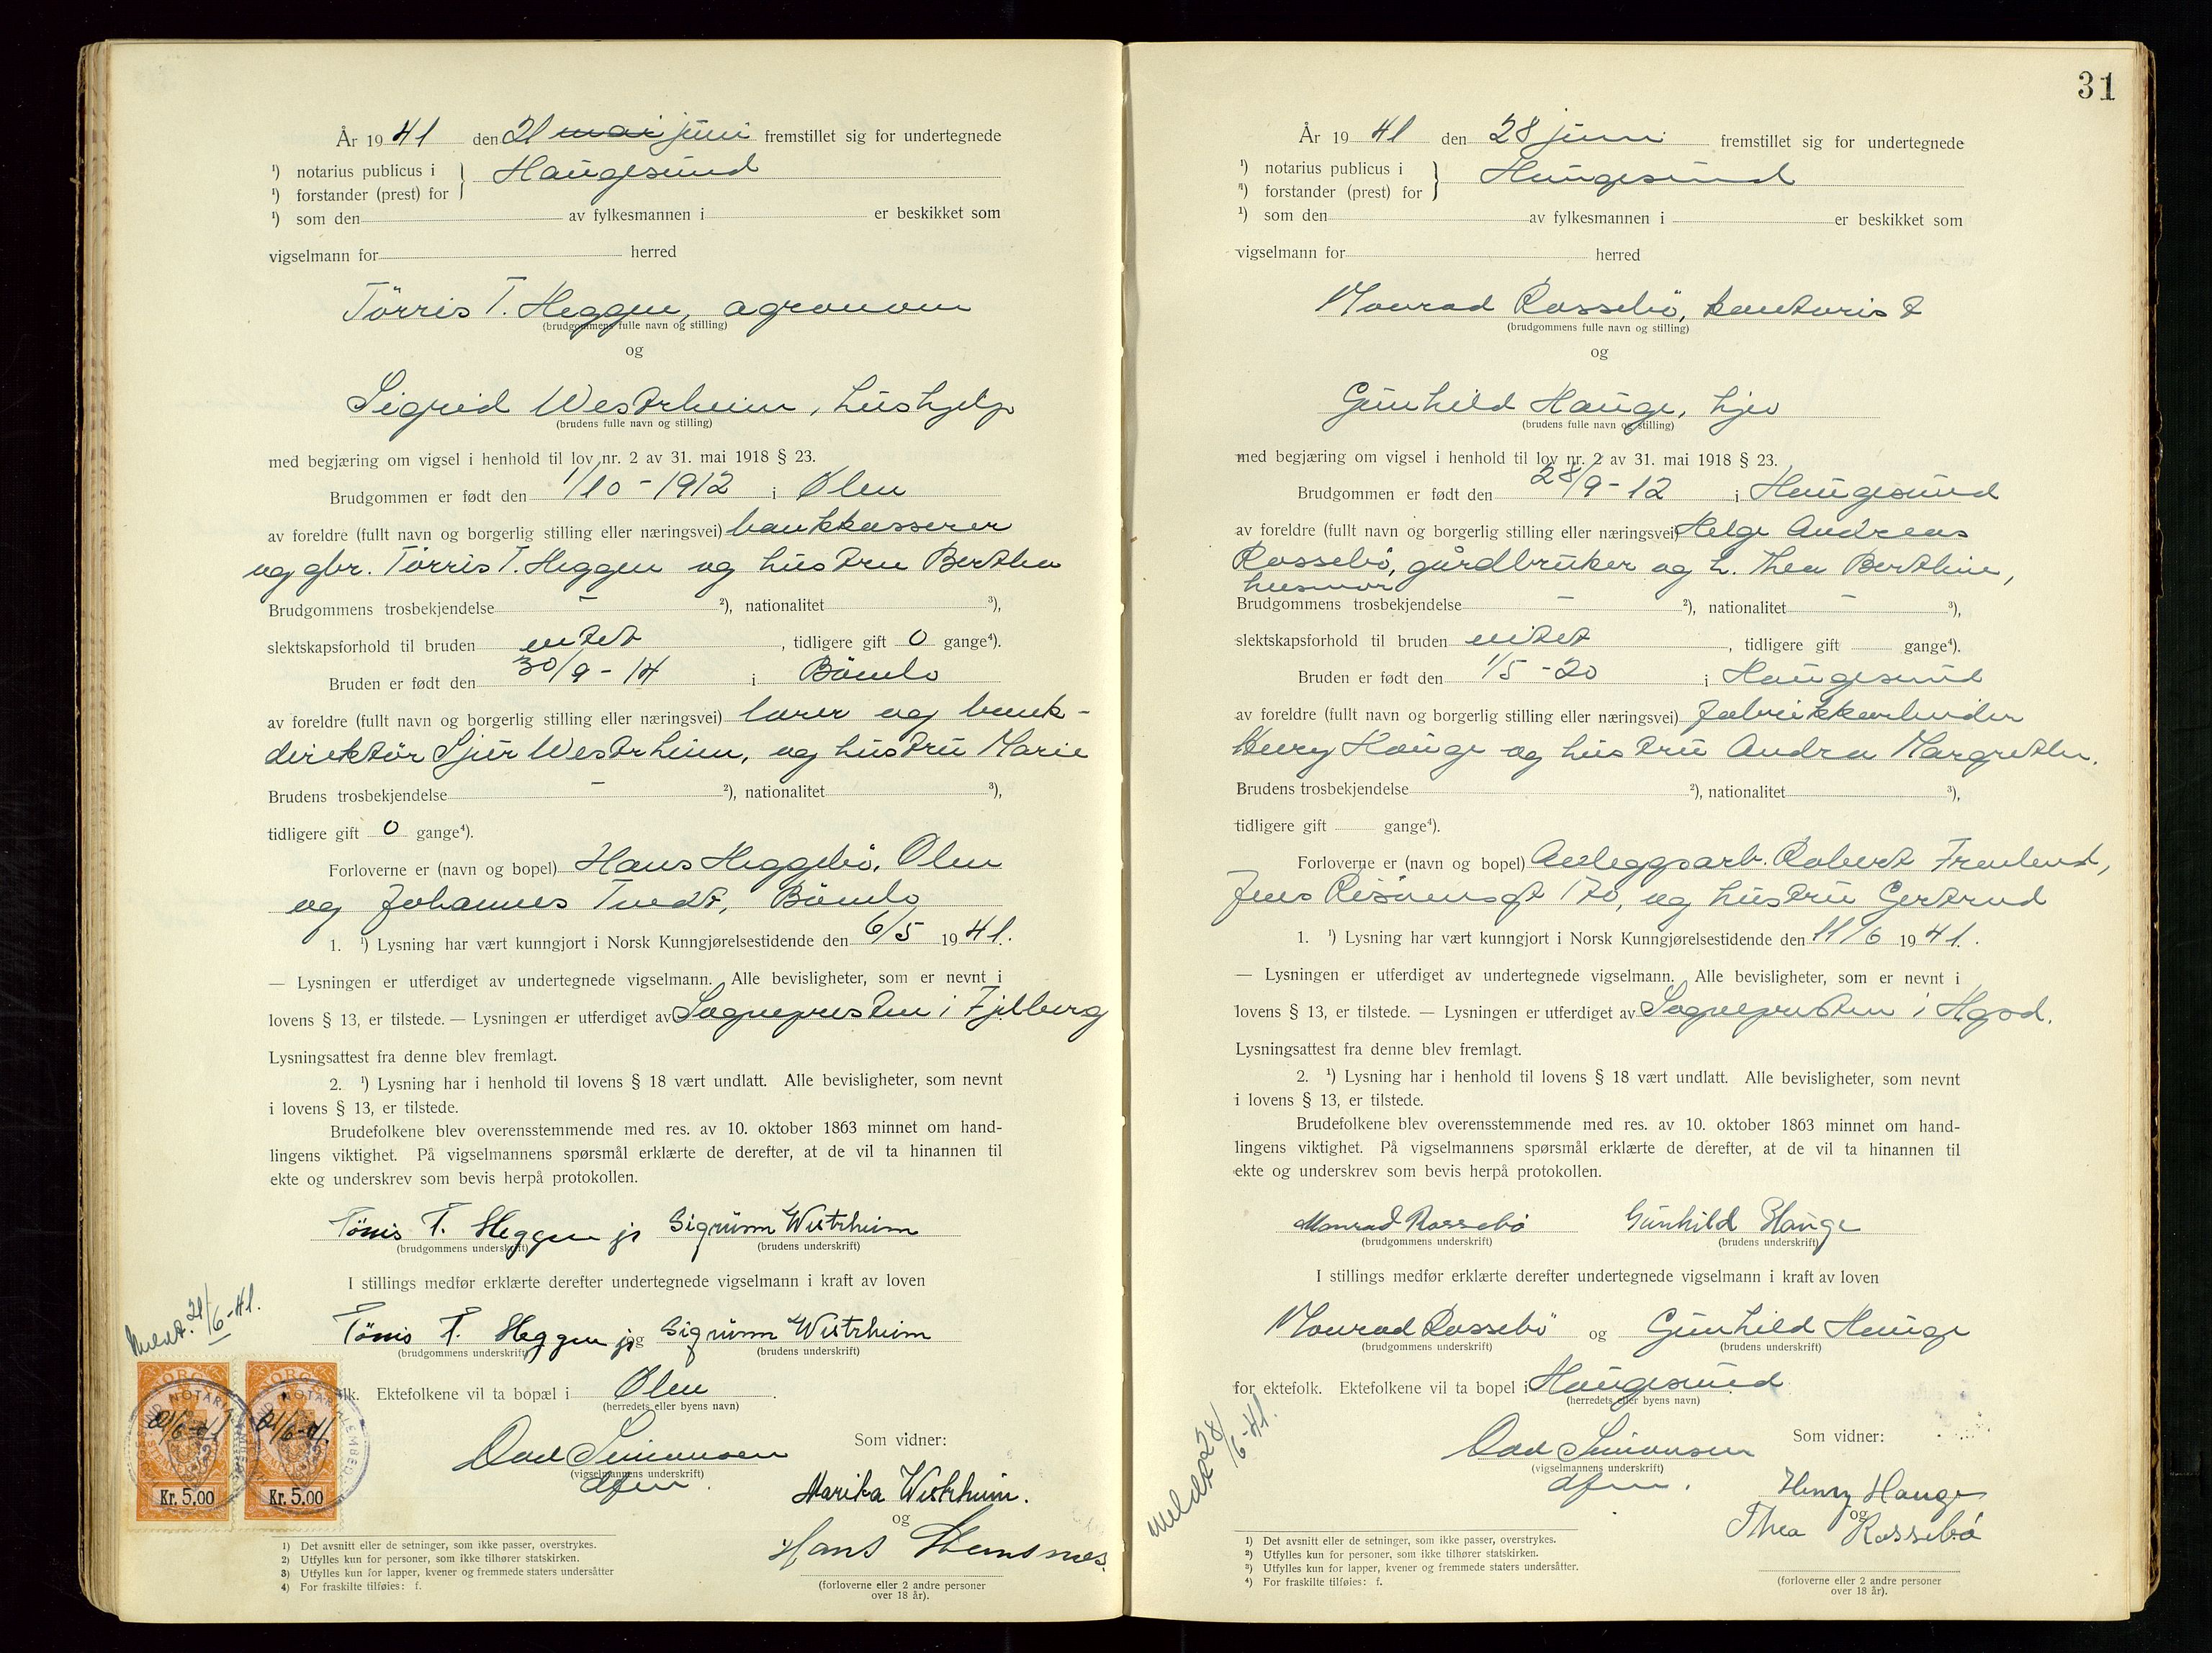 År 1941 den 21 mai juni fremstillet sig for undertegnede
¹) notarius publicus i } Haugesund
¹) forstander (prest) for
¹) som den av fylkesmannen i er beskikket som
vigselmann for herred
Törris T. Heggen, agronom
(brudgommens fulle navn og stilling)
og
Sigrid Westrheim, hushjelp
(brudens fulle navn og stilling)
med begjæring om vigsel i henhold til lov nr. 2 av 31. mai 1918 § 23.
Brudgommen er født den 1/10-1912 i Ølen
av foreldre (fullt navn og borgerlig stilling eller næringsvei) bankkasserer
og gbr. Törris T. Heggen og hustru Bertha
Brudgommens trosbekjendelse - ²), nationalitet ³),
slektskapsforhold til bruden intet, tidligere gift 0 gange⁴).
Bruden er født den 30/9-14 i Bömlo
av foreldre (fullt navn og borgerlig stilling eller næringsvei) lærer og bank-
direktör Sjur Westrheim, og hustru Marie
Brudens trosbekjendelse - ²), nationalitet ³),
tidligere gift 0 gange⁴).
Forloverne er (navn og bopel) Hans Heggebö, Ølen
og Johannes Tvedt, Bömlo
1. ¹) Lysning har vært kunngjort i Norsk Kunngjørelsestidende den 6/5 1941.
— Lysningen er utferdiget av undertegnede vigselmann. Alle bevisligheter, som er nevnt i
lovens § 13, er tilstede. — Lysningen er utferdiget av Sognepresten i Fjelberg
Lysningsattest fra denne blev fremlagt.
2. ¹) Lysning har i henhold til lovens § 18 vært undlatt. Alle bevisligheter, som nevnt
i lovens § 13, er tilstede.
Brudefolkene blev overensstemmende med res. av 10. oktober 1863 minnet om hand-
lingens viktighet. På vigselmannens spørsmål erklærte de derefter, at de vil ta hinannen til
ekte og underskrev som bevis herpå protokollen.
Törris T. Heggen jr Sigrunn Westrheim
(brudgommens underskrift) (brudens underskrift)
I stillings medfør erklærte derefter undertegnede vigselmann i kraft av loven
Meldt. 21/6-41.
Törris T. Heggen jr og Sigrunn Westrheim
(brudgommens underskrift) (brudens underskrift)
lk. Ektefolkene vil ta bopæl i Ølen.
(herredets eller byens navn)
NORGE NORGE
21/6-41 21/6-41.
Kr. 5.00 Kr. 5.00
Odd Simonsen
(vigselmannens underskrift)
dfm.
Som vidner:
Marika Westrheim.
og
Hans
(forloverne eller 2 andre personer
over 18 år).
1) Det avsnitt eller de setninger, som ikke passer, overstrykes.
2) Utfylles kun for personer, som ikke tilhører statskirken.
3) Utfylles kun for lapper, kvener og fremmede staters undersåtter
4) For fraskilte tilføies: f.
31
År 1941 den 28 juni fremstillet sig for undertegnede
¹) notarius publicus i } Haugesund
¹) forstander (prest) for
¹) som den av fylkesmannen i er beskikket som
vigselmann for herred
Monrad Rossebö, kontorist
(brudgommens fulle navn og stilling)
og
Gunhild Hauge, hjev
(brudens fulle navn og stilling)
med begjæring om vigsel i henhold til lov nr. 2 av 31. mai 1918 § 23.
Brudgommen er født den 28/9-12 i Haugesund
av foreldre (fullt navn og borgerlig stilling eller næringsvei) Helge Andreas
Rossebö, gårdbruker og h. Thea Berthine,
husmor
Brudgommens trosbekjendelse - ²), nationalitet - ³),
slektskapsforhold til bruden intet, tidligere gift gange⁴).
Bruden er født den 1/5-20 i Haugesund
av foreldre (fullt navn og borgerlig stilling eller næringsvei) fabrikkarbeider
Henry Hauge og hustru Andrea Margrethe.
Brudens trosbekjendelse ²), nationalitet ³),
tidligere gift gange⁴).
Forloverne er (navn og bopel) Anleggsarb. Robert
Jens Risöensgt 170, og hustru Gertrud
1. ¹) Lysning har vært kunngjort i Norsk Kunngjørelsestidende den 11/6 1941.
— Lysningen er utferdiget av undertegnede vigselmann. Alle bevisligheter, som er nevnt i
lovens § 13, er tilstede. — Lysningen er utferdiget av Sognepresten i Hgsd.
Lysningsattest fra denne blev fremlagt.
2. ¹) Lysning har i henhold til lovens § 18 vært undlatt. Alle bevisligheter, som nevnt
i lovens § 13, er tilstede.
Brudefolkene blev overensstemmende med res. av 10. oktober 1863 minnet om hand-
lingens viktighet. På vigselmannens spørsmål erklærte de derefter, at de vil ta hinannen til
ekte og underskrev som bevis herpå protokollen.
Monrad Rossebö Gunhild Hauge
(brudgommens underskrift) (brudens underskrift)
I stillings medfør erklærte derefter undertegnede vigselmann i kraft av loven
Monrad Rossebö og Gunhild Hauge
(brudgommens underskrift) (brudens underskrift)
for ektefolk. Ektefolkene vil ta bopel i Haugesund
(herredets eller byens navn)
Meldt 28/6-41.
Odd Simonsen
(vigselmannens underskrift)
dfm.
Som vidner:
Henry Hauge
og
Thea Rossebö
(forloverne eller 2 andre personer
over 18 år).
1) Det avsnitt eller de setninger, som ikke passer, overstrykes.
2) Utfylles kun for personer, som ikke tilhører statskirken.
3) Utfylles kun for lapper, kvener og fremmede staters undersåtter.
4) For fraskilte tilføies: f.